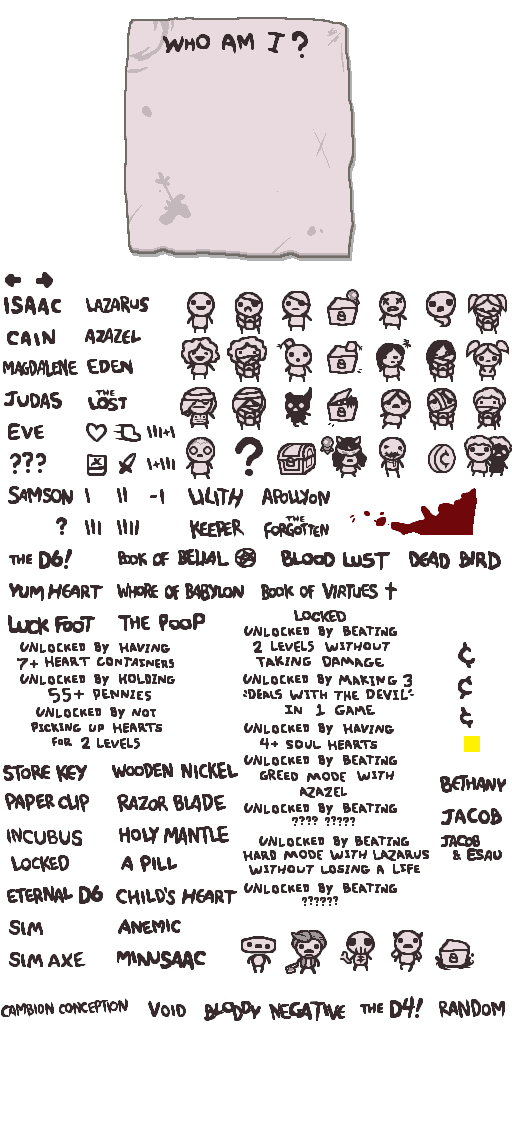 WHO AM I?
ISAAC LAZARUS
CAIN AZAZEL
MAGDALENE EDEN
JUDAS THE LOST
EVE
???
?
SAMSON I II -1 LILITH APOLLYON
? III IIII KEEPER THE FORGOTTEN
THE D6! BOOK OF BELIAL BLOOD LUST DEAD BIRD
YUM HEART WHORE OF BABYLON BOOK OF VIRTUES
LUCK FOOT THE POOP
LOCKED
UNLOCKED BY BEATING
2 LEVELS WITHOUT
TAKING DAMAGE
UNLOCKED BY HAVING
7+ HEART CONTAINERS
UNLOCKED BY HOLDING
55+ PENNIES
UNLOCKED BY NOT
PICKING UP HEARTS
FOR 2 LEVELS
UNLOCKED BY MAKING 3
"DEALS WITH THE DEVIL"
IN 1 GAME
UNLOCKED BY HAVING
4+ SOUL HEARTS
UNLOCKED BY BEATING
GREED MODE WITH
AZAZEL
UNLOCKED BY BEATING
???? ?????
UNLOCKED BY BEATING
HARD MODE WITH LAZARUS
WITHOUT LOSING A LIFE
UNLOCKED BY BEATING
??????
¢
¢
¢
STORE KEY WOODEN NICKEL
PAPER CLIP RAZOR BLADE
INCUBUS HOLY MANTLE
LOCKED A PILL
ETERNAL D6 CHILD'S HEART
SIM ANEMIC
SIM AXE MINUSAAC
BETHANY
JACOB
JACOB
& ESAU
CAMBION CONCEPTION VOID BLOODY NEGATIVE THE D4! RANDOM